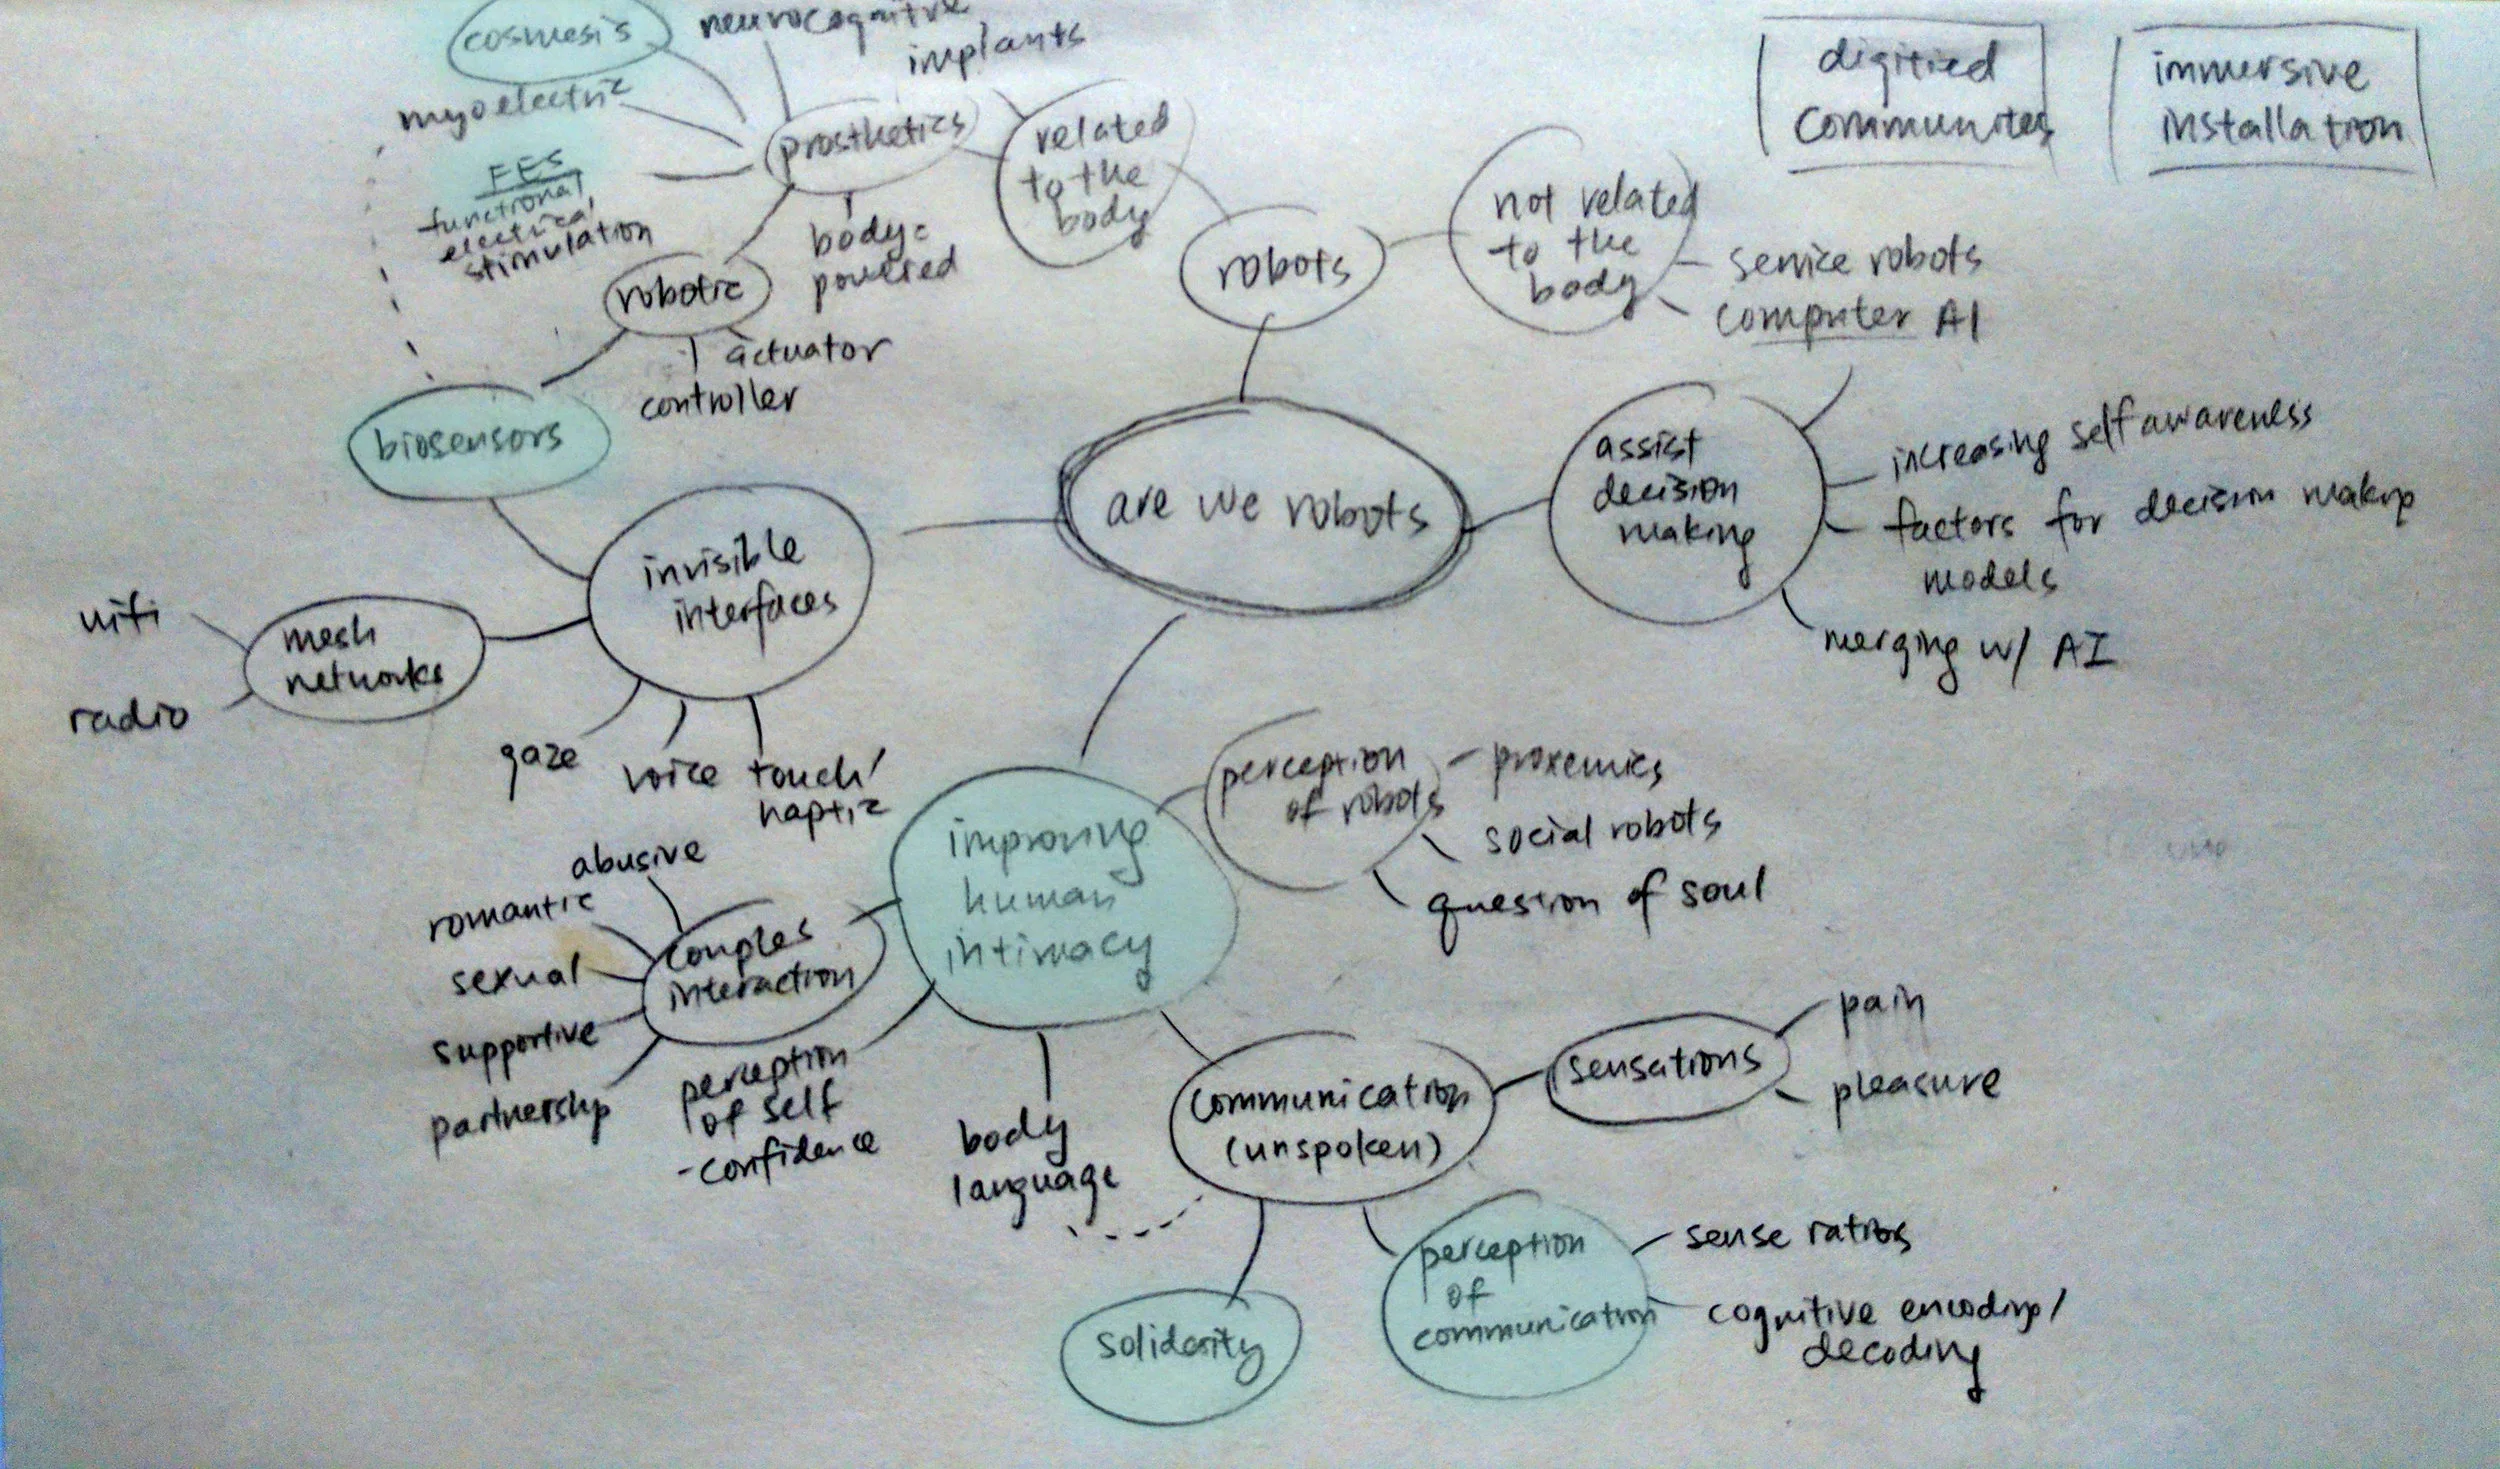 cosmesis
neurocognitive
implants
myoelectric
FES
functional
electrical
stimulation
prosthetics
body-
powered
related
to the
body
robotic
actuator
controller
biosensors
robots
not related
to the
body
service robots
computer AI
digitied
communites
immersive
installation
are we robots
assist
decision
making
increasing self awareness
factors for decision making
models
merging w/ AI
invisible
interfaces
mesh
networks
wifi
radio
gaze
voice
touch/
haptic
improving
human
intimacy
perception
of robots
proxemics
social robots
question of soul
couples
interaction
abusive
romantic
sexual
supportive
partnership
perception
of self
-confidence
body
language
communication
(unspoken)
sensations
pain
pleasure
solidarity
perception
of
communication
sense ratios
cognitive encoding/
decoding